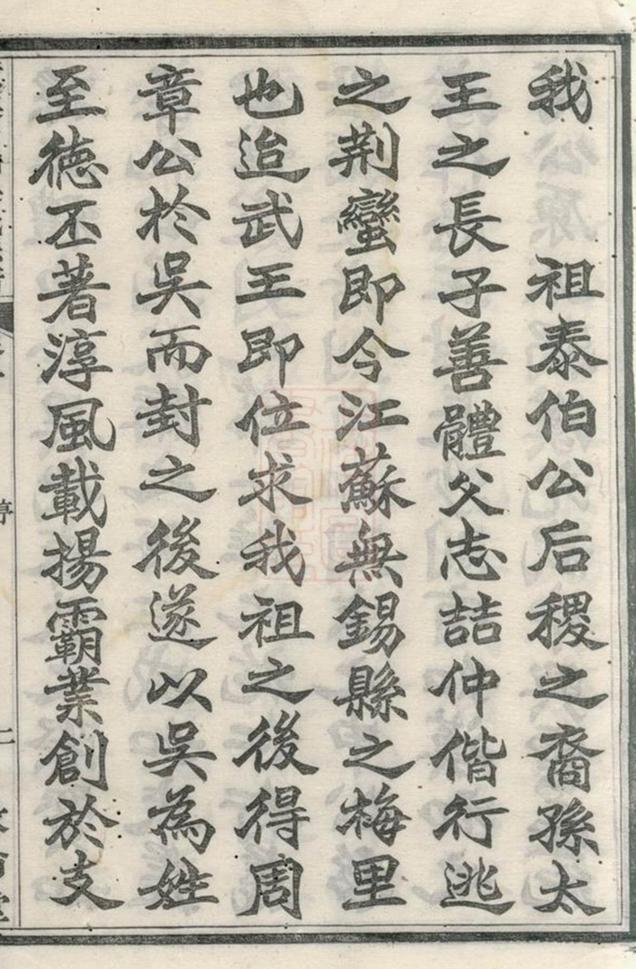 我　祖泰伯公后稷之裔孫太
王之長子善體父志喆仲偕行逃
之荆蠻即今江蘇無錫縣之梅里
也迨武王即位求我祖之後得周
章公於吳而封之後遂以吳為姓
至德丕著淳風載揚霸業創於支